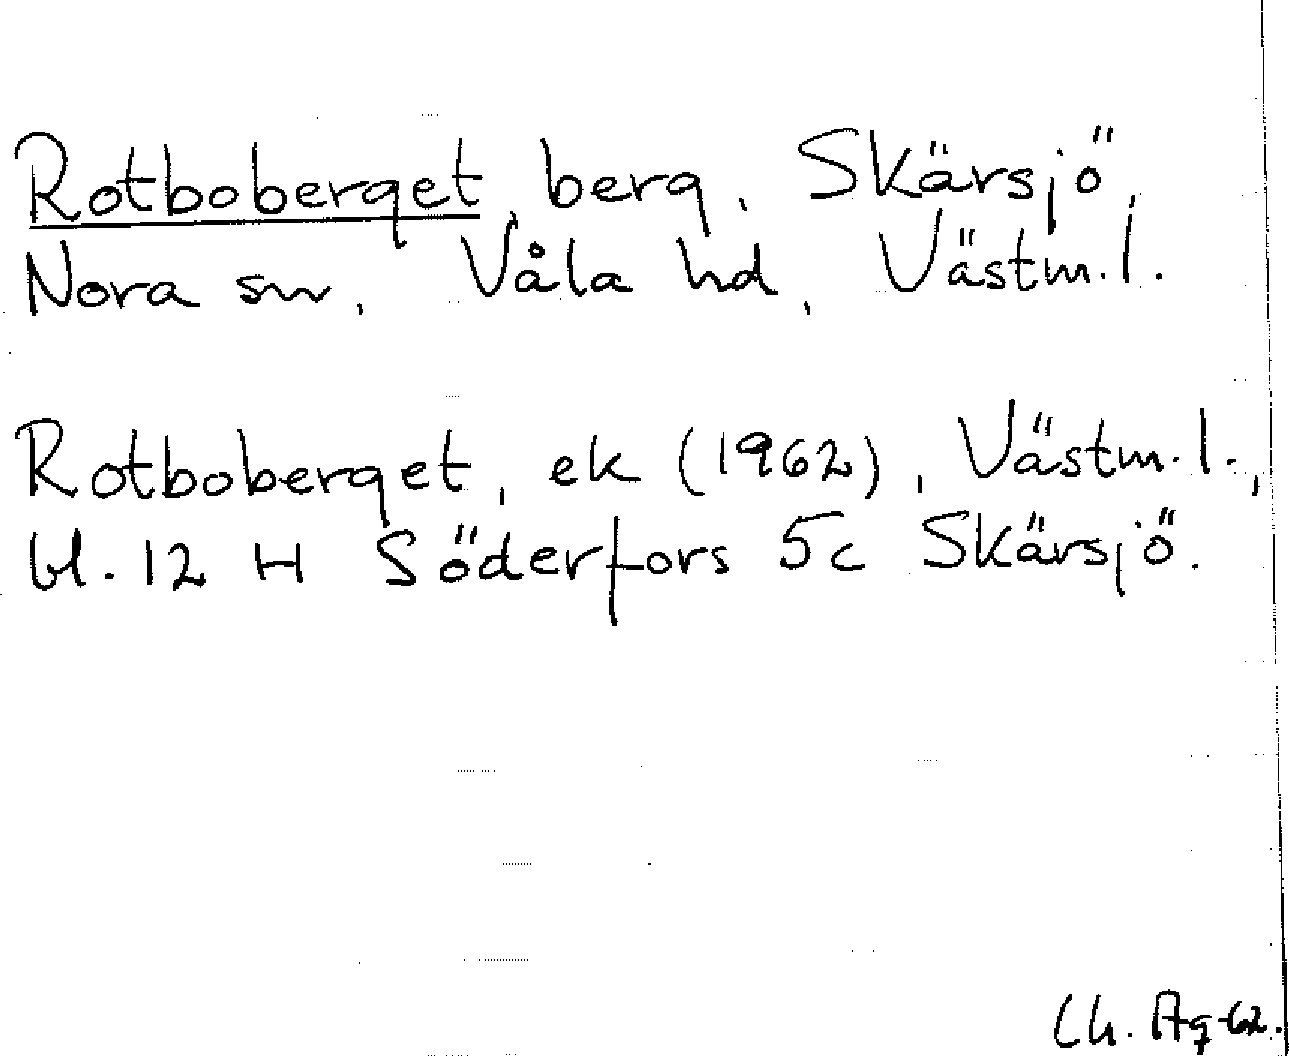 Rotboberget, berg, Skärsjö,
Nora sn, Våla hd, Västm.l.
Rotboberget, ek (1962), Västm.l.,
bl. 12 H Söderfors 5c Skärsjö.
Ch. Ag -62.